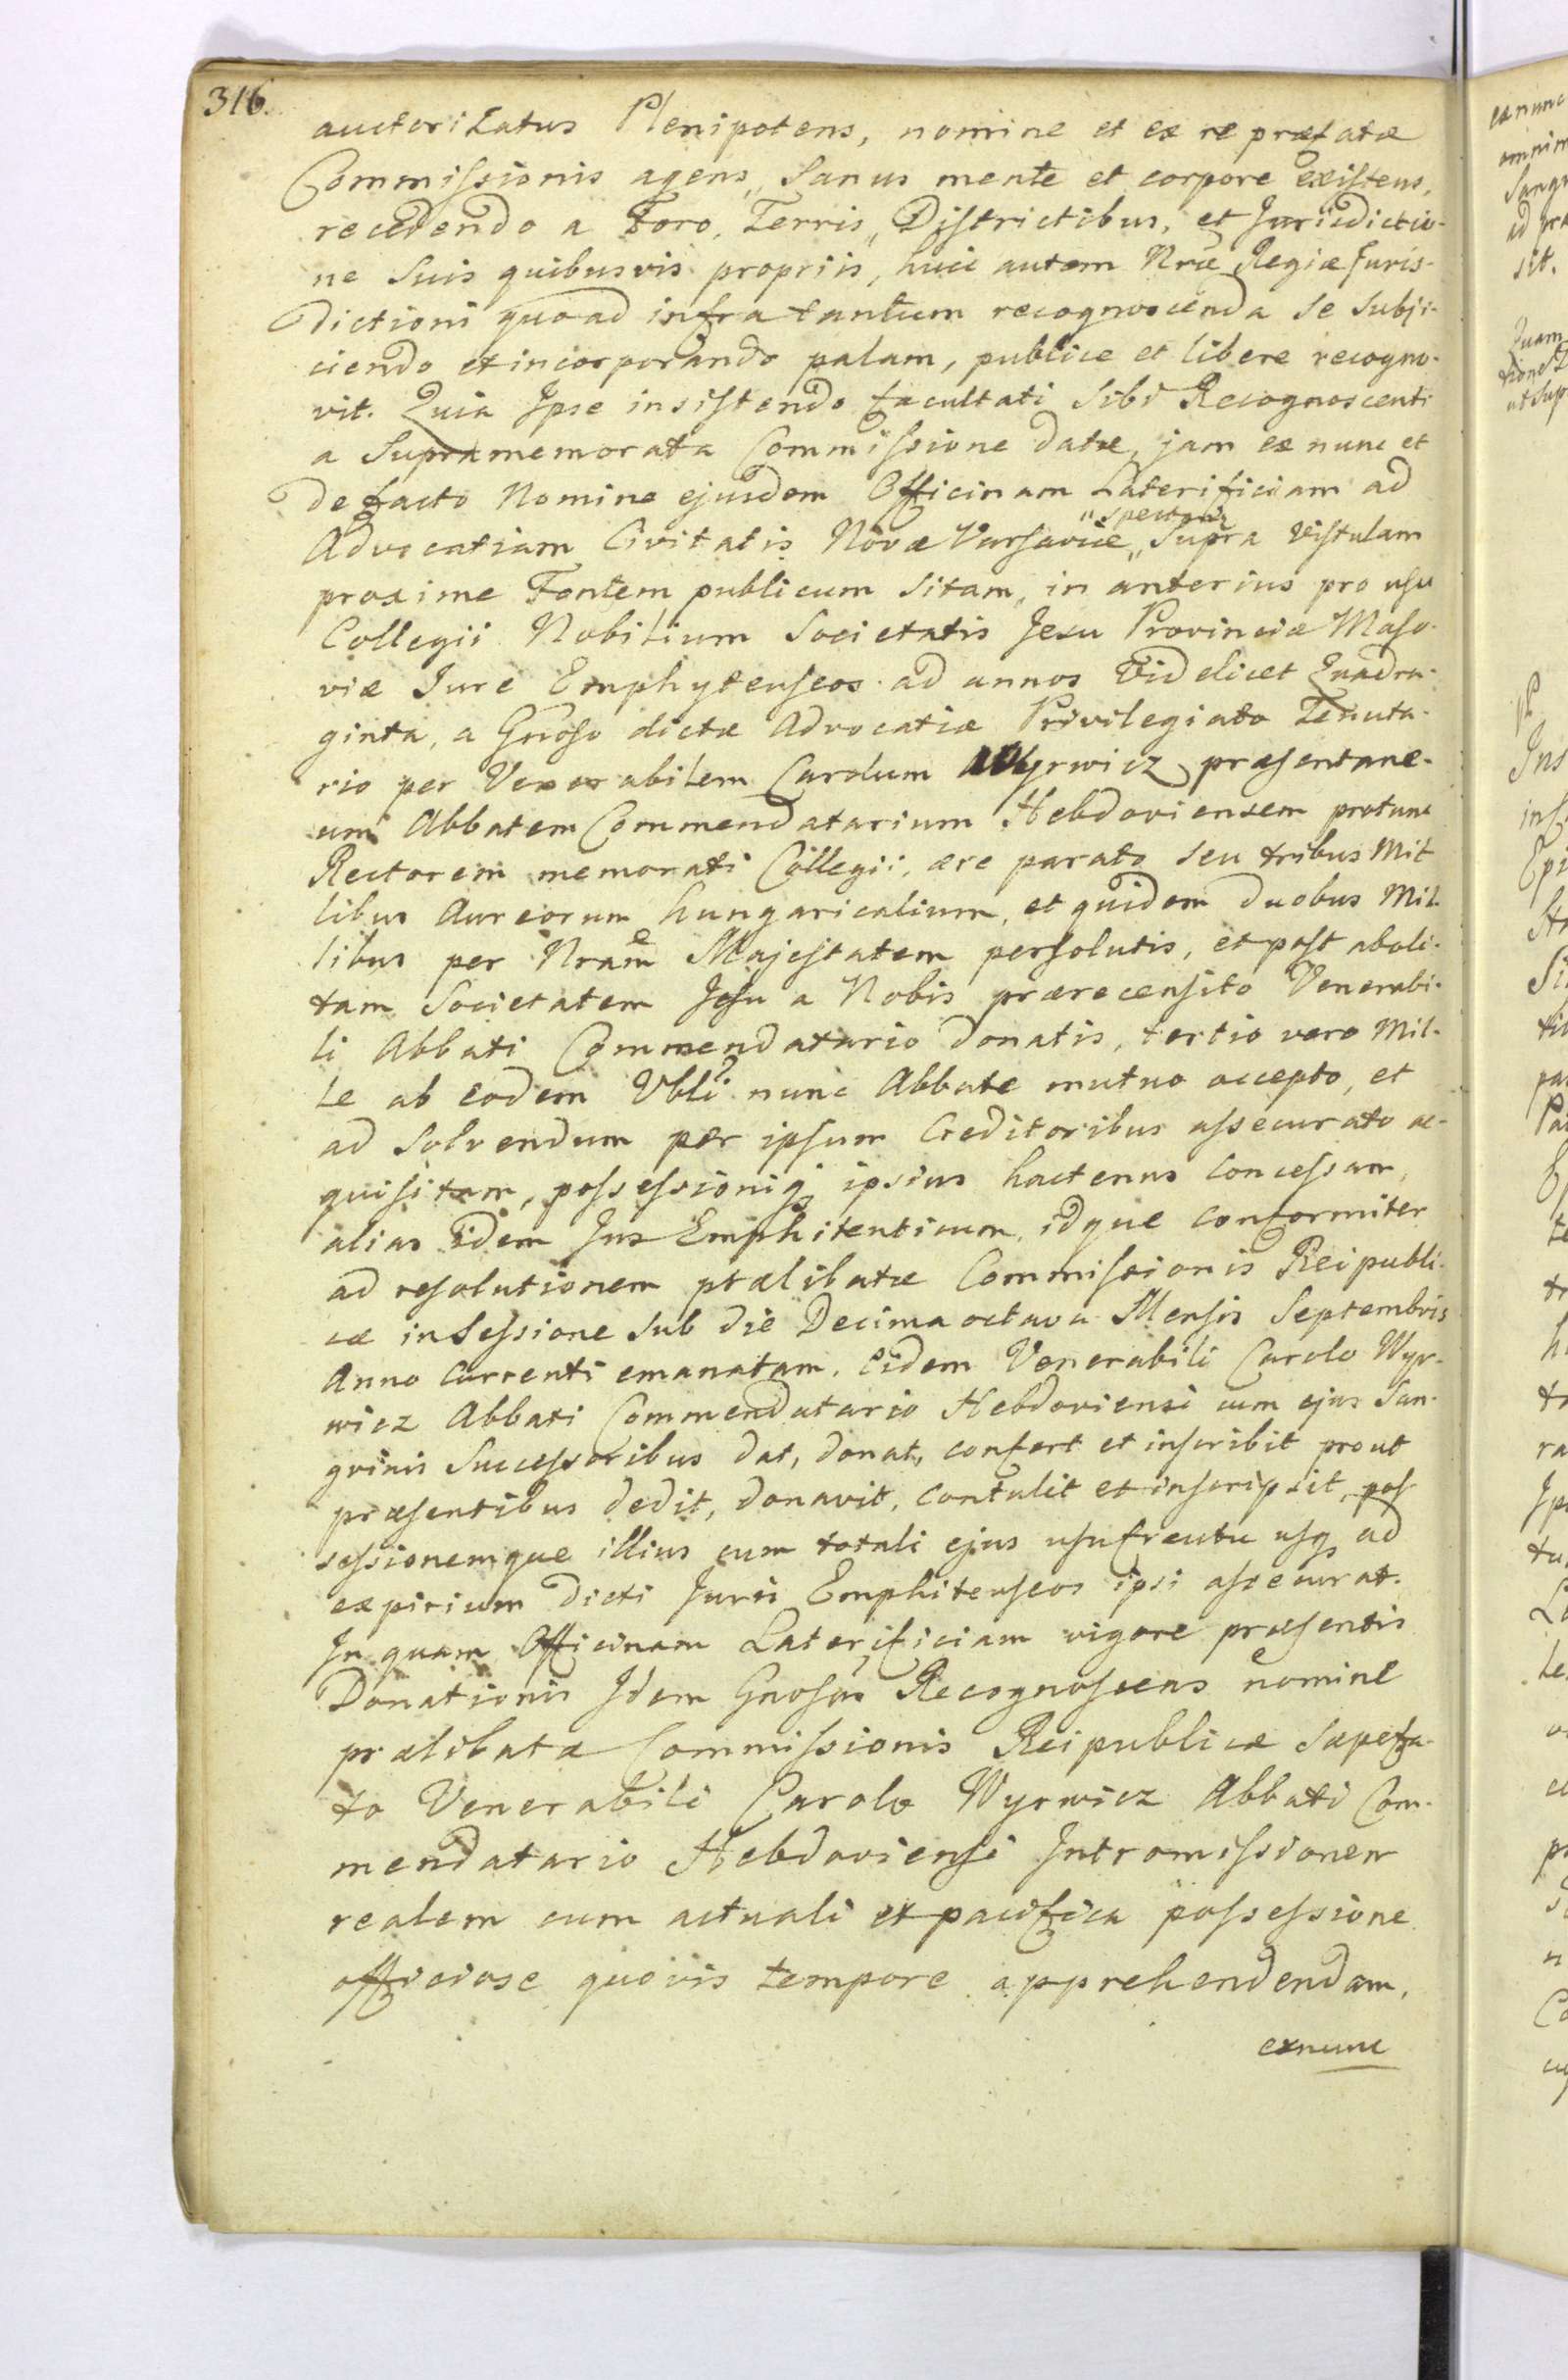 316.
auctoritatus Plenipotens, nomine et ex re præfatæ
Commissionis agens, Sanus mente et corpore existens,
recedendo a Foro, Terris, Districtibus, et Jurisdictio-
ne Suis quibusvis propriis, huic autem Nræ Regiæ Juris-
dictioni quoad infra tantum recognoscenda se Subji-
ciendo et incorporando palam, publice et libere recogno-
vit. Quia Ipse insistendo facultati Sibi Recognoscenti
a Supramemorata Commissione datæ, jam ex nunc et
de facto Nomine ejusdem Officinam Laterificiam ad
Advocatiam Civitatis Novæ Varsaviæ " Supra Vistulam
proxime Fontem publicum Sitam, in anterius pro usu
Collegii Nobilium Societatis Jesu Provinciæ Maso-
viæ Jure Emphyteuseos ad annos Videlicet Quadra-
ginta, a Gnoso dictæ Advocatiæ Privilegiato Tenuta-
rio per Venerabilem Carolum Wyrwicz præsentane-
um Abbatem Commendatarium Hebdoviensem protunc
Rectorem memorati Collegii, ære parato seu tribus Mil
libus Aureorum hungaricalium, et quidem duobus Mil-
libus per Nram Majestatem persolutis, et post aboli-
tam Societatem Jesu a Nobis prærecensito Venerabi-
li Abbati Commendatario donatis, tertio vero Mil-
le ab eodem Vbli nunc Abbate mutuo accepto, et
ad Solvendum per ipsum Creditoribus assecurato ac-
quisitam, possessioniq; ipsius hactenus concessam,
alias idem Jus Emphiteuticum, idque conformiter
ad resolutionem prælibatæ Commissionis Reipubli-
cæ in Sessione Sub die Decima octava Mensis Septembris
Anno Currenti emanatam. Eidem Venerabili Carolo Wyr-
wicz Abbati Commendatario Hebdoviensi cum ejus San-
gvinis Successoribus dat, donat, confert et inscribit prout
præsentibus dedit, donavit, contulit et inscripsit, pos
sessionemque illius cum totali ejus usufructu usq; ad
expirium dicti Juris Emphiteuseos ipsi assecurat.
In quam Officinam Laterificiam vigore præsentis
Donationis Idem Gnosus Recognoscens nomine
prælibatæ Commissionis Reipublicæ Sæpefa-
to Venerabili Carolo Wyrwicz Abbati Com-
mendatario Hebdoviensi Intromissionem
realem cum actuali et pacifica possessione
officiose quovis tempore apprehendendam,
exnunc